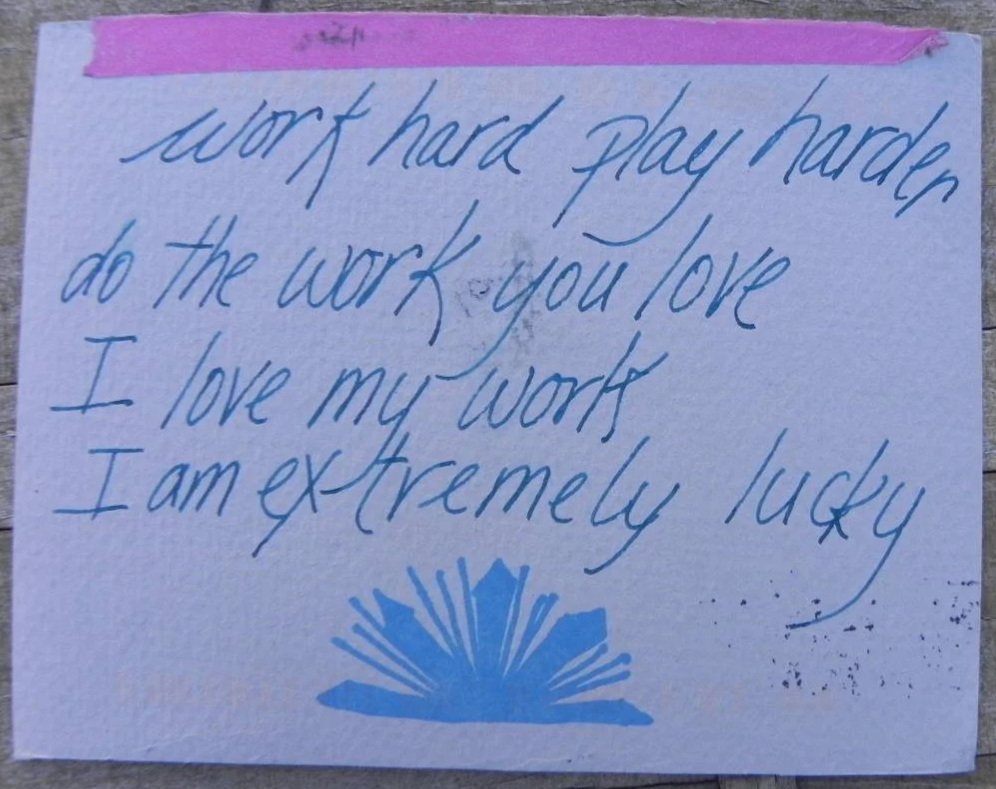 work hard play harder
do the work you love
I love my work
I am extremely lucky